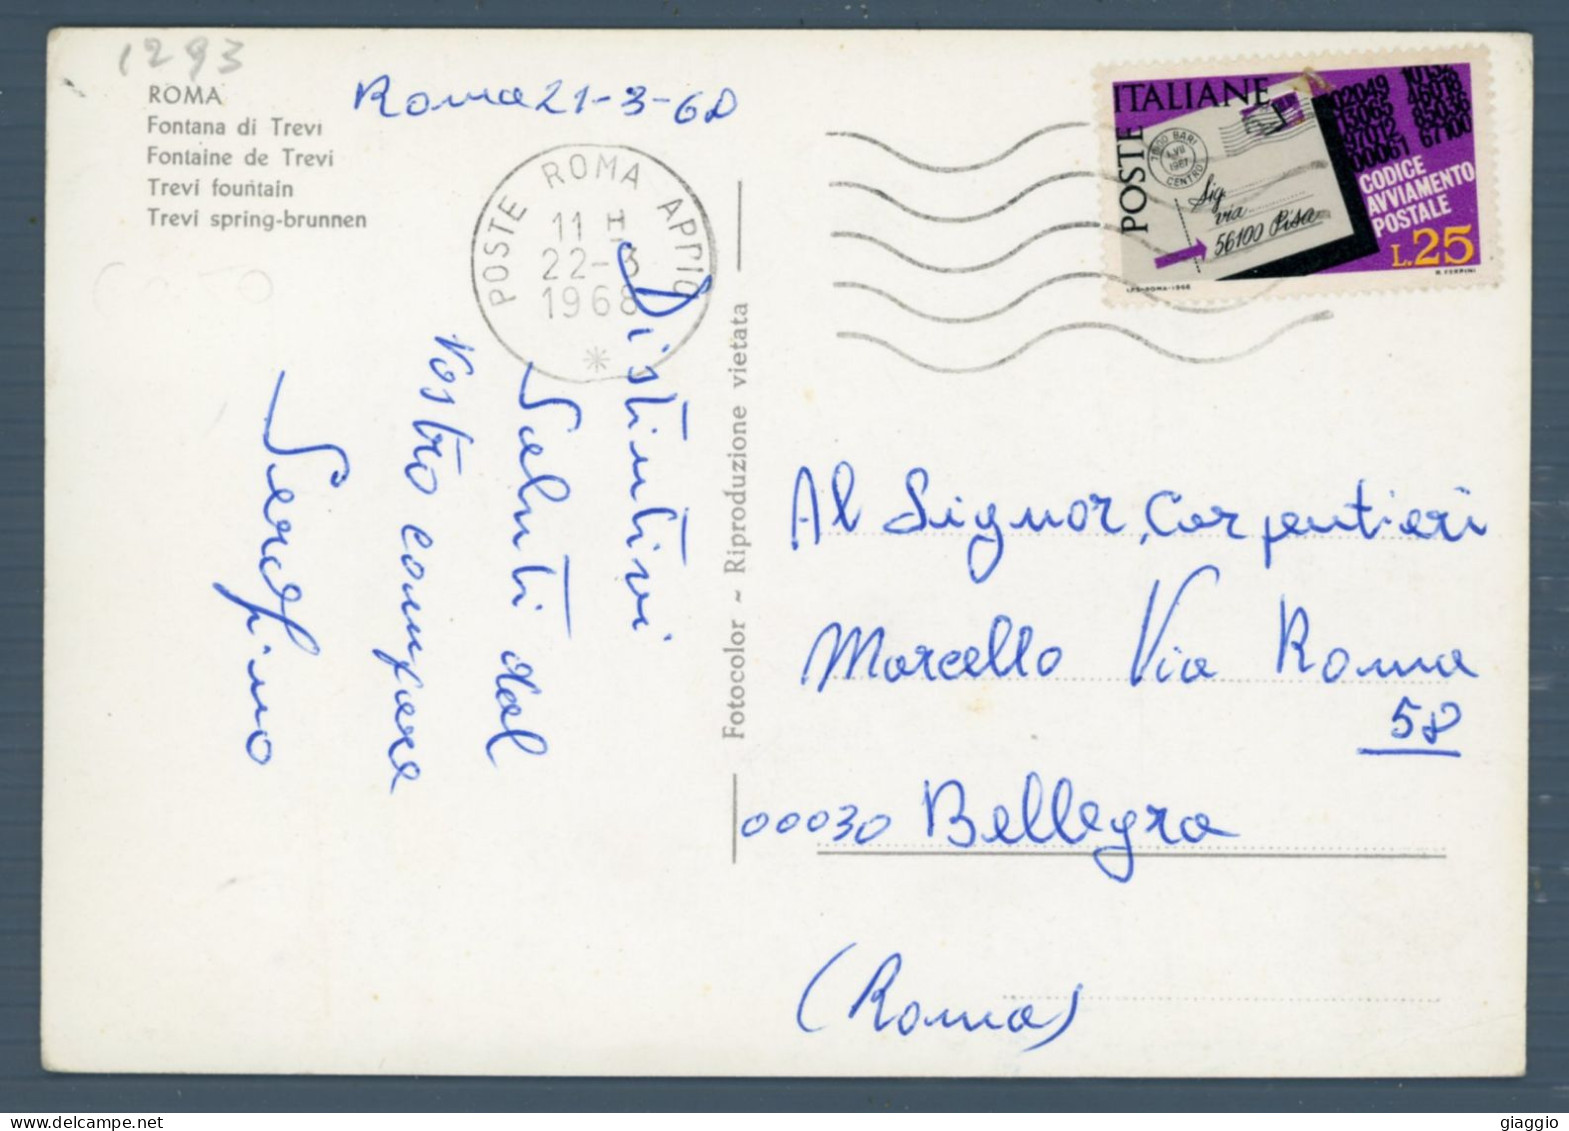 1293
ROMA
Fontana di Trevi
Fontaine de Trevi
Trevi fountain
Trevi spring-brunnen
Roma 21-3-68
POSTE ROMA APPIO
11 H
22-3
1968
Distintivi
Saluti dal
Vostro compare
Serafino
Fotocolor ~ Riproduzione vietata
POSTE ITALIANE
7800 BARI
1967
CENTRO
Sig.
via
56100 Pisa
CODICE
AVVIAMENTO
POSTALE
L.25
I.P.S.-ROMA-1968
Al Signor, Carpentieri
Marcello Via Roma
58
00030 Bellegra
(Roma)
giaggio